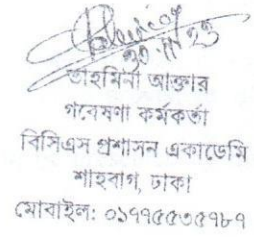 ৩০.১১.২৩
তাহমিনা আক্তার
গবেষণা কর্মকর্তা
বিসিএস প্রশাসন একাডেমি
শাহবাগ, ঢাকা
মোবাইল: ০১৭৭৫৫০৫৭৮৭